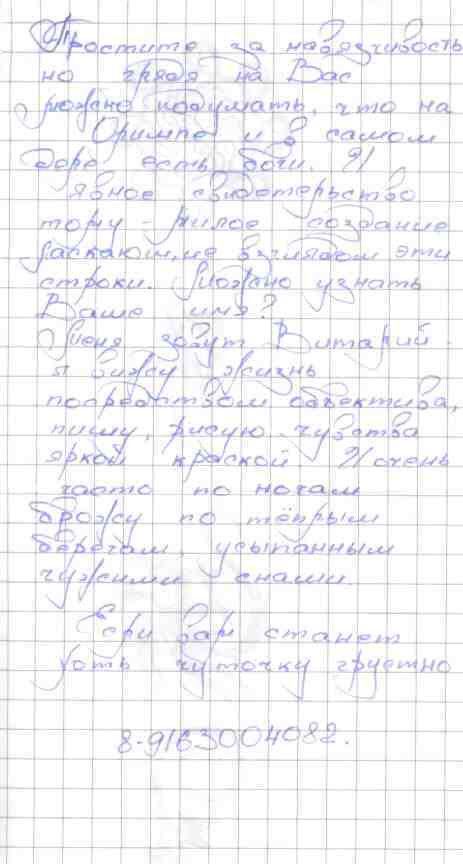 Простите за навязчивость
но глядя на Вас
можно подумать, что на
Олимпе и в самом
деле есть боги. И
явное свидетельство
тому - милое создание
ласкающие взглядом эти
строки. Можно узнать
Ваше имя?
Меня зовут Виталий.
я вижу жизнь
посредством объектива,
пишу, рисую чувства
яркой краской. И очень
часто по ночам
брожу по тёплым
берегам, усыпанным
чужими снами.
Если вам станет
хоть чуточку грустно
8-9163004082.